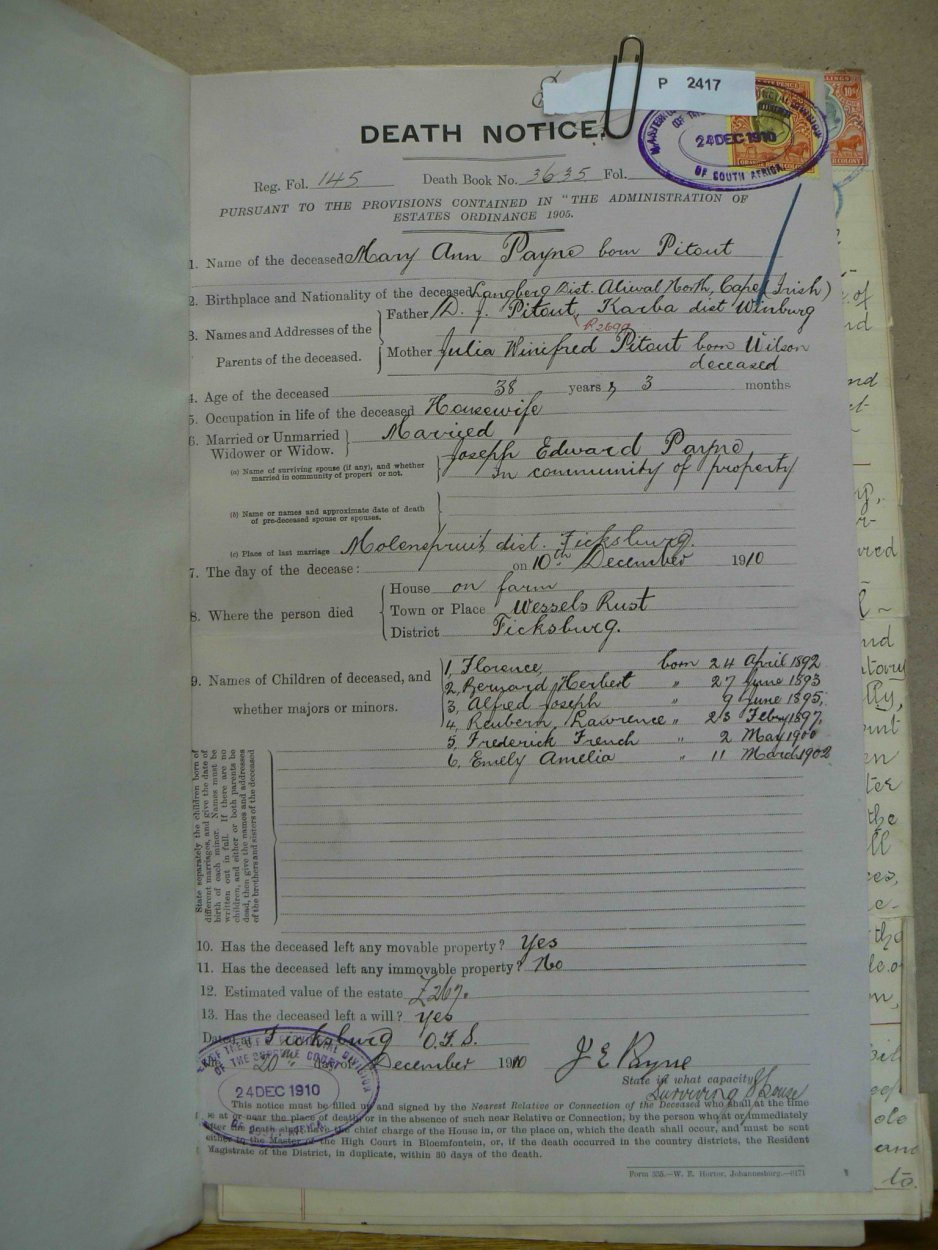 P 2417
DEATH NOTICE.
24 DEC 1910
OF SOUTH AFRICA
Reg. Fol. 145 Death Book No. 3635 Fol.
PURSUANT TO THE PROVISIONS CONTAINED IN "THE ADMINISTRATION OF
ESTATES ORDINANCE 1905.
1. Name of the deceased Mary Ann Payne born Pitout
2. Birthplace and Nationality of the deceased Langberg Dist. Aliwal North, Cape (Irish)
3. Names and Addresses of the Parents of the deceased.
Father D. J. Pitout, Karba dist Winburg
Mother Julia Winifred Pitout born Wilson
deceased
4. Age of the deceased 38 years & 3 months
5. Occupation in life of the deceased Housewife
6. Married or Unmarried Widower or Widow. Married
(a) Name of surviving spouse (if any), and whether married in community of propert or not.
Joseph Edward Payne,
In community of property
(b) Name or names and approximate date of death
of pre-deceased spouse or spouses.
(c) Place of last marriage Molenspruit dist. Ficksburg.
7. The day of the decease: on 10th December 1910
8. Where the person died
House on farm
Town or Place Wessels Rust
District Ficksburg.
9. Names of Children of deceased, and
whether majors or minors.
1, Florence, born 24 April 1892
2, Bernard Herbert " 27 June 1893
3, Alfred Joseph " 9 June 1895,
4, Reubern Lawrence " 23 Febry 1897,
5, Frederick French " 2 May 1900
6, Emily Amelia " 11 March 1902
State separately the children born of
different marriages, and give the date of
birth of each minor. Names must be
written out in full. If there are no
children, and either or both parents be
dead, then give the names and addresses
of the brothers and sisters of the deceased
10. Has the deceased left any movable property? Yes
11. Has the deceased left any immovable property? No
12. Estimated value of the estate £267.
13. Has the deceased left a will? Yes
Dated at Ficksburg O.F.S.
20th day of December 1910
J E Payne
State in what capacity
Surviving Spouse
OF THE SUPREME COURT
24 DEC 1910
This notice must be filled up and signed by the Nearest Relative or Connection of the Deceased who shall at the time
be at or near the place of death, or in the absence of such near Relative or Connection; by the person who at or immediately
after the death shall have the chief charge of the House in, or the place on, which the death shall occur, and must be sent
either to the Master of the High Court in Bloemfontein, or, if the death occurred in the country districts, the Resident
Magistrate of the District, in duplicate, within 30 days of the death.
Form 335.—W. E. Hortor, Johannesburg.—6171